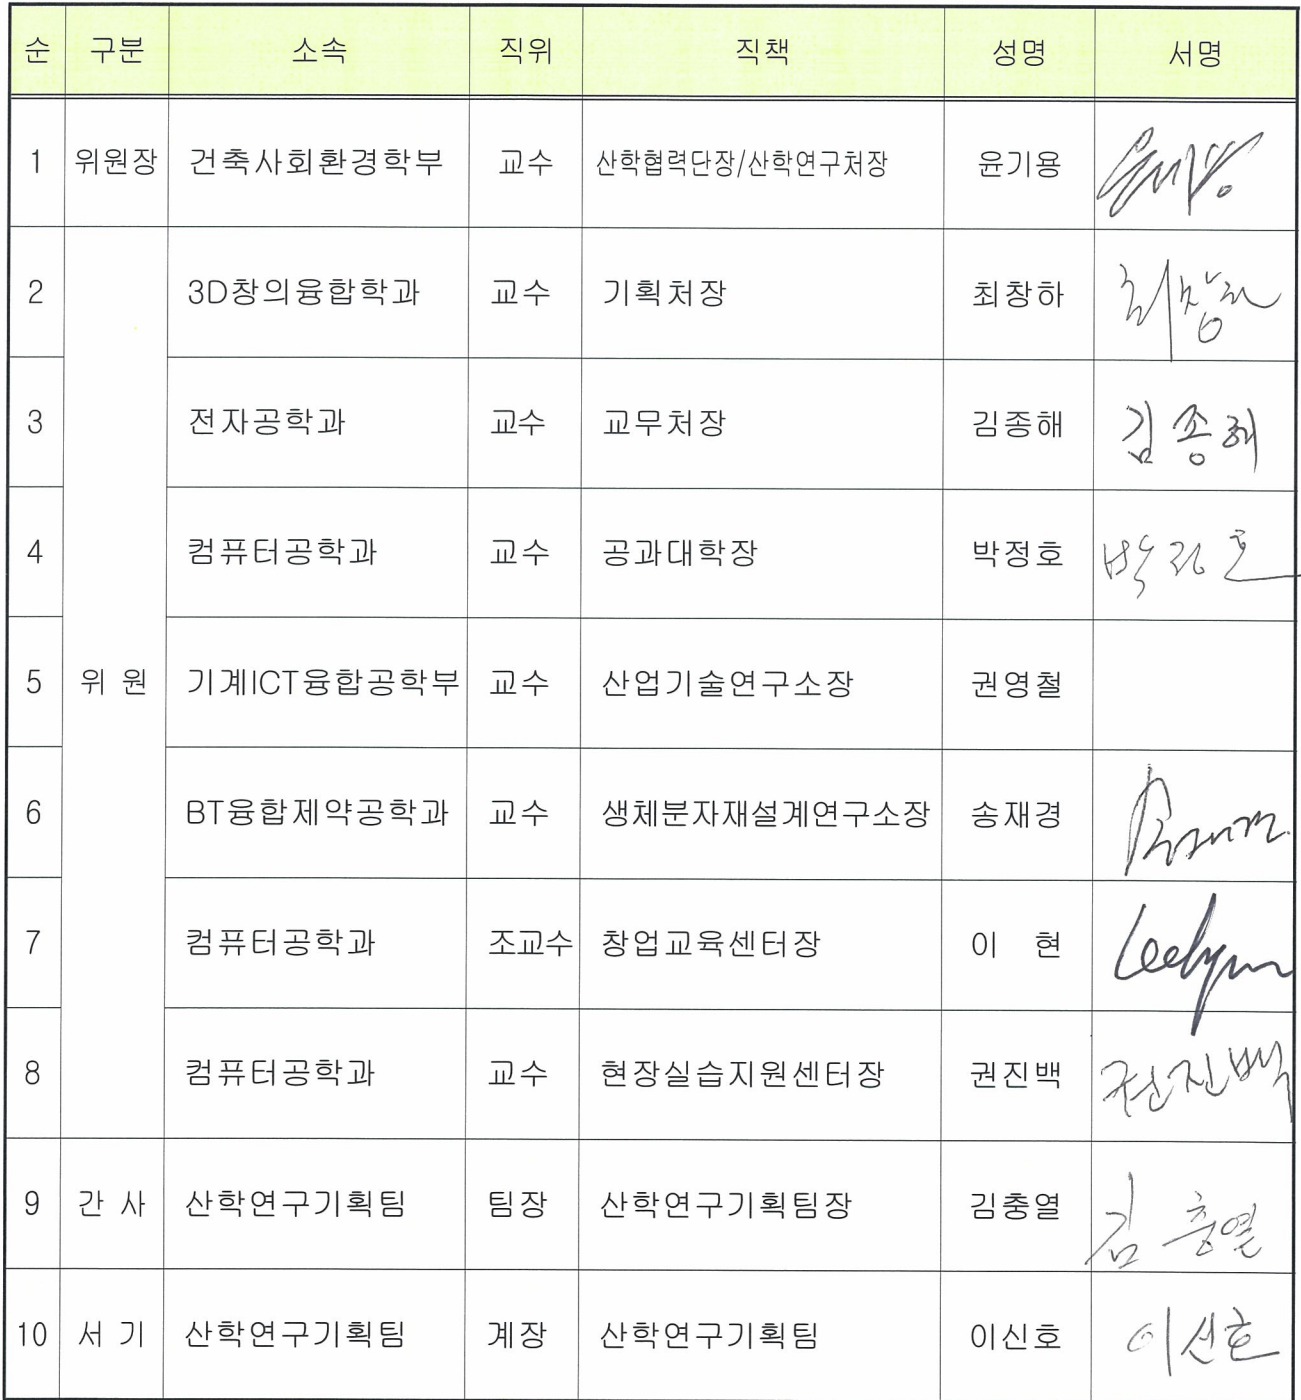 순 구분 소속 직위 직책 성명 서명
1 위원장 건축사회환경학부 교수 산학협력단장/산학연구처장 윤기용
2 3D창의융합학과 교수 기획처장 최창하 최창하
3 전자공학과 교수 교무처장 김종해 김종해
4 컴퓨터공학과 교수 공과대학장 박정호 박정호
5 위 원 기계ICT융합공학부 교수 산업기술연구소장 권영철
6 BT융합제약공학과 교수 생체분자재설계연구소장 송재경
7 컴퓨터공학과 조교수 창업교육센터장 이 현 Leehyun
8 컴퓨터공학과 교수 현장실습지원센터장 권진백 권진백
9 간 사 산학연구기획팀 팀장 산학연구기획팀장 김충열 김충열
10 서 기 산학연구기획팀 계장 산학연구기획팀 이신호 이신호